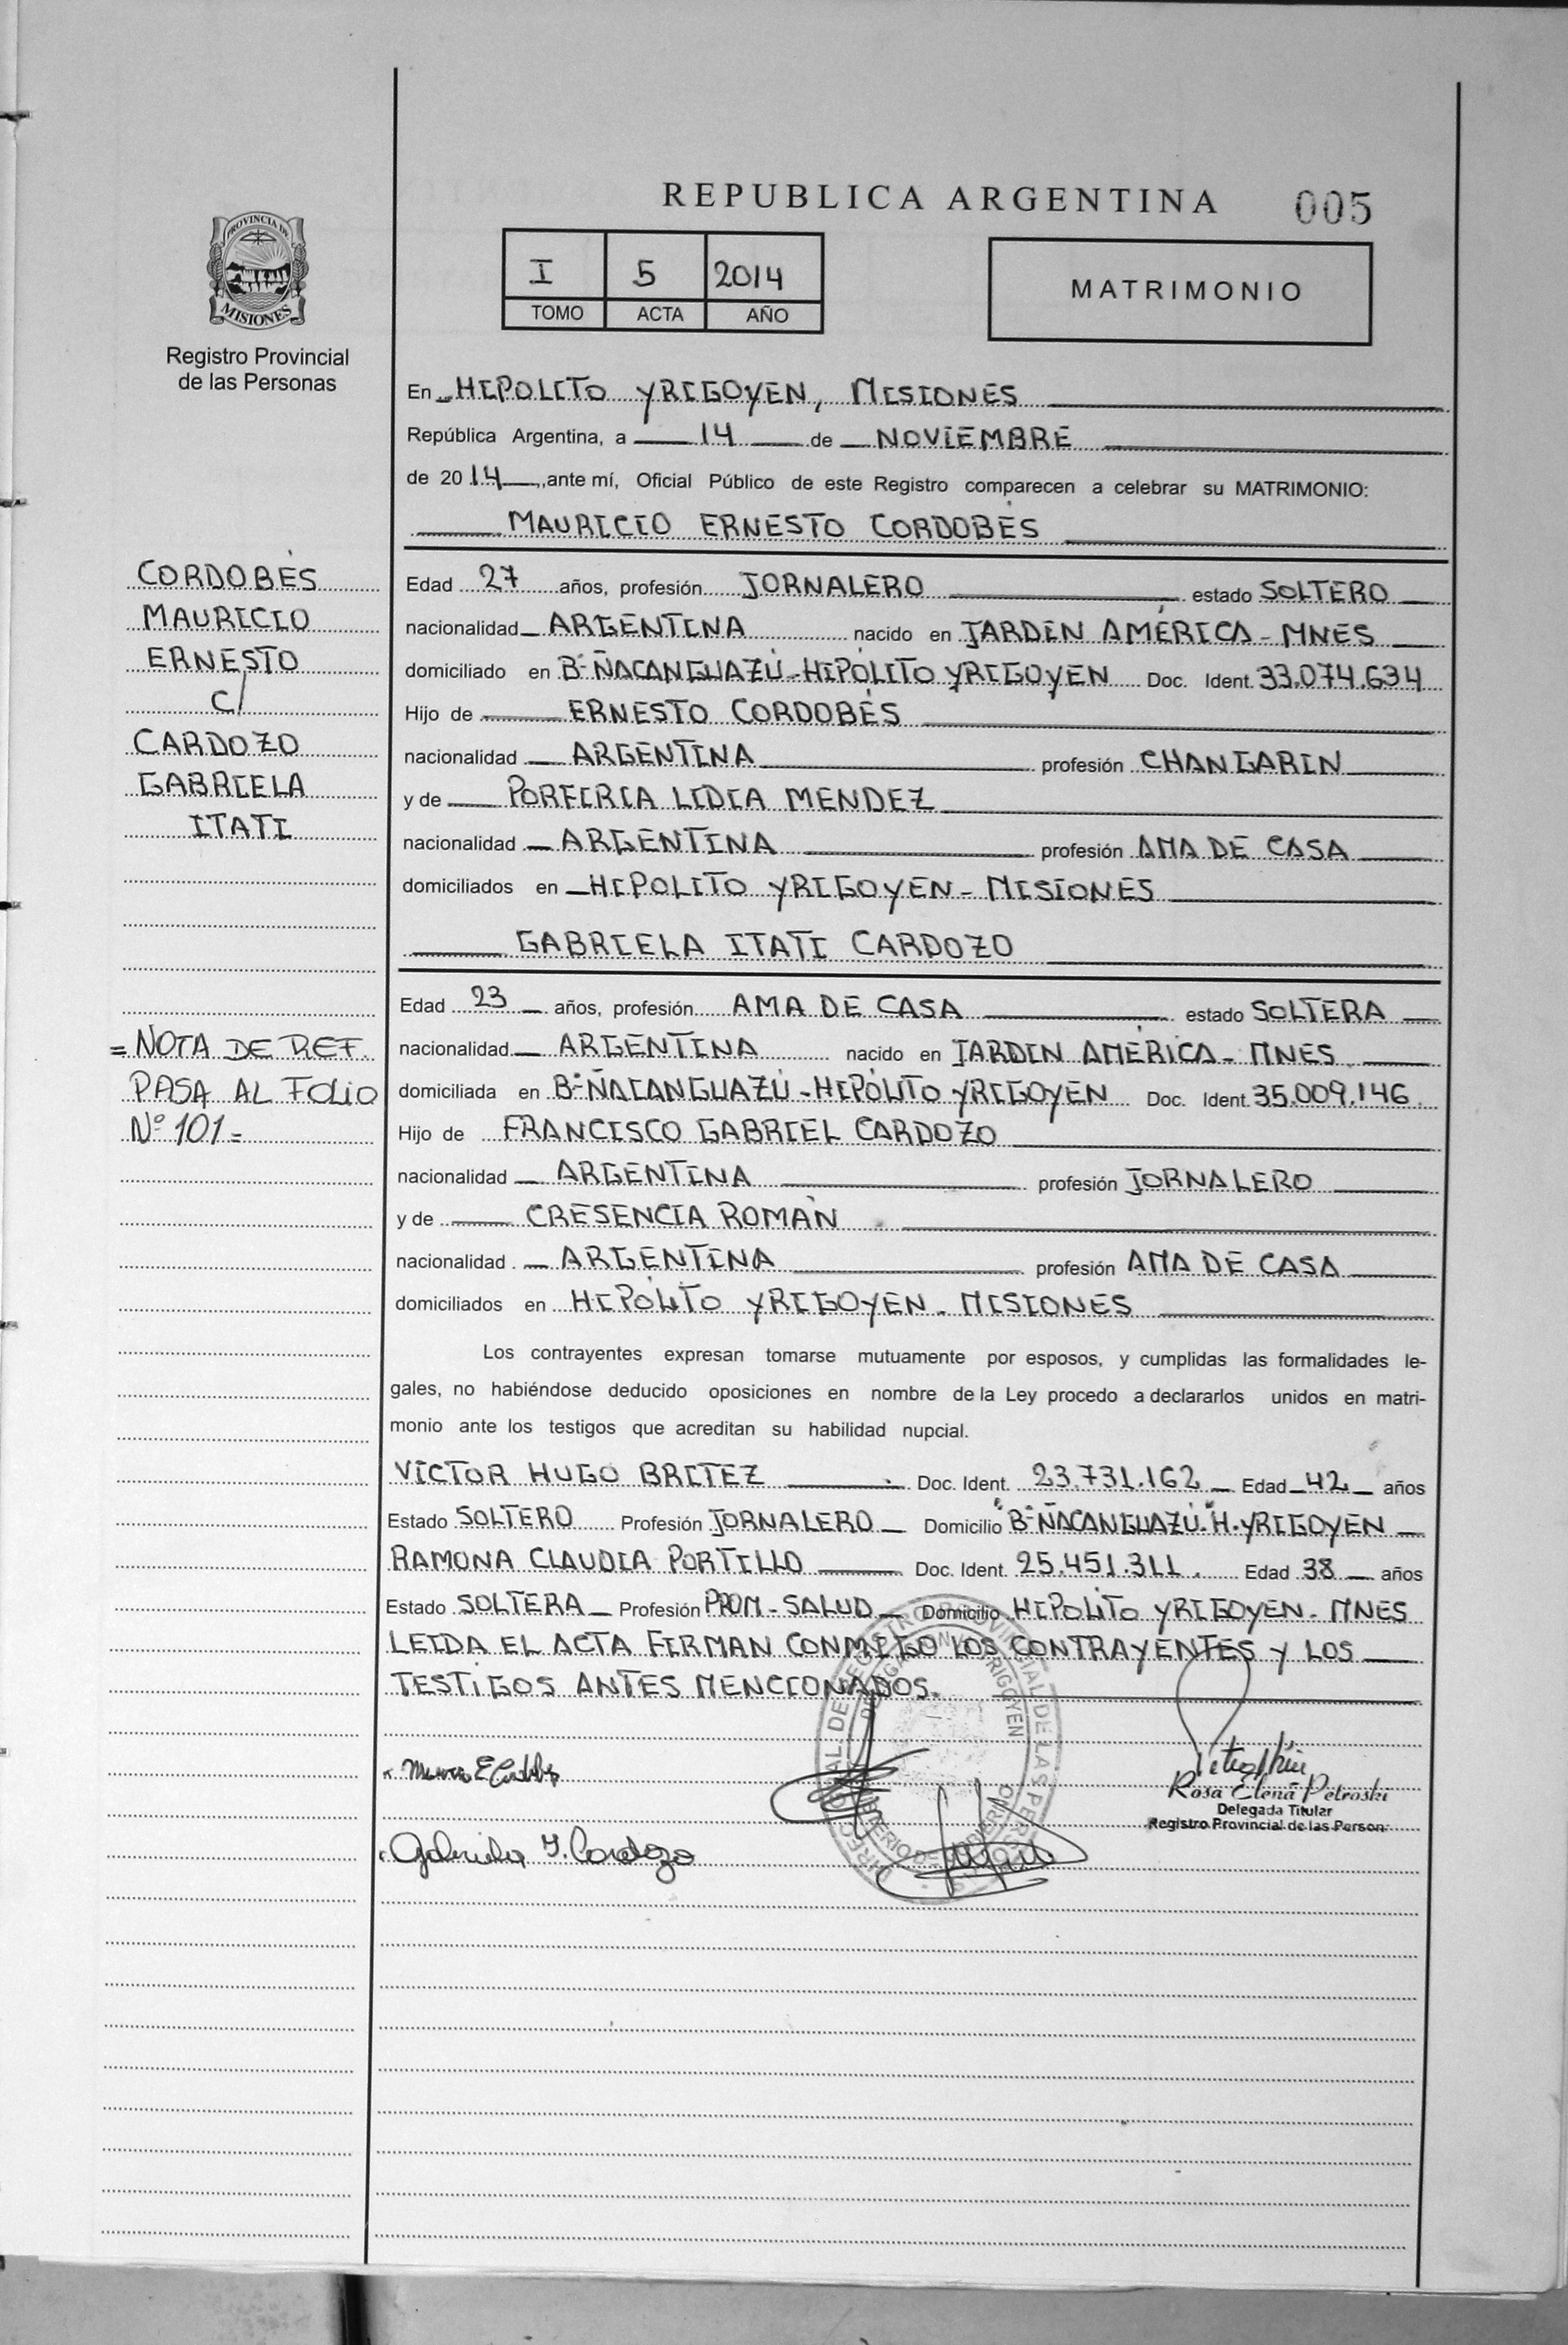 REPUBLICA ARGENTINA
005
PROVINCIA DE
MISIONES
Registro Provincial
de las Personas
I 5 2014
TOMO ACTA AÑO
MATRIMONIO
En HIPOLITO YRIGOYEN, MISIONES
República Argentina, a 14 de NOVIEMBRE
de 2014, ante mí, Oficial Público de este Registro comparecen a celebrar su MATRIMONIO:
MAURICIO ERNESTO CORDOBÉS
CORDOBÉS
MAURICIO
ERNESTO
C/
CARDOZO
GABRIELA
ITATI
Edad 27 años, profesión JORNALERO estado SOLTERO
nacionalidad ARGENTINA nacido en JARDIN AMÉRICA - MNES
domiciliado en Bº ÑACANGUAZÚ - HIPÓLITO YRIGOYEN Doc. Ident. 33.074.634
Hijo de ERNESTO CORDOBÉS
nacionalidad ARGENTINA profesión CHANGARIN
y de PORFIRIA LIDIA MENDEZ
nacionalidad ARGENTINA profesión AMA DE CASA
domiciliados en HIPOLITO YRIGOYEN - MISIONES
GABRIELA ITATI CARDOZO
Edad 23 años, profesión AMA DE CASA estado SOLTERA
nacionalidad ARGENTINA nacido en JARDIN AMÉRICA - MNES
domiciliada en Bº ÑACANGUAZÚ - HIPÓLITO YRIGOYEN Doc. Ident. 35.009.146
Hijo de FRANCISCO GABRIEL CARDOZO
nacionalidad ARGENTINA profesión JORNALERO
y de CRESENCIA ROMÁN
nacionalidad ARGENTINA profesión AMA DE CASA
domiciliados en HIPÓLITO YRIGOYEN - MISIONES
= NOTA DE REF.
PASA AL FOLIO
Nº 101 =
Los contrayentes expresan tomarse mutuamente por esposos, y cumplidas las formalidades le-
gales, no habiéndose deducido oposiciones en nombre de la Ley procedo a declararlos unidos en matri-
monio ante los testigos que acreditan su habilidad nupcial.
VICTOR HUGO BRITEZ Doc. Ident. 23.731.162 Edad 42 años
Estado SOLTERO Profesión JORNALERO Domicilio Bº ÑACANGUAZÚ. H. YRIGOYEN
RAMONA CLAUDIA PORTILLO Doc. Ident. 25.451.311. Edad 38 años
Estado SOLTERA Profesión PROM - SALUD Domicilio HIPOLITO YRIGOYEN - MNES
LEIDA EL ACTA FIRMAN CONMIGO LOS CONTRAYENTES Y LOS
TESTIGOS ANTES MENCIONADOS.
Gabriela I. Cardozo
Rosa Elena Petroski
Delegada Titular
Registro Provincial de las Person.